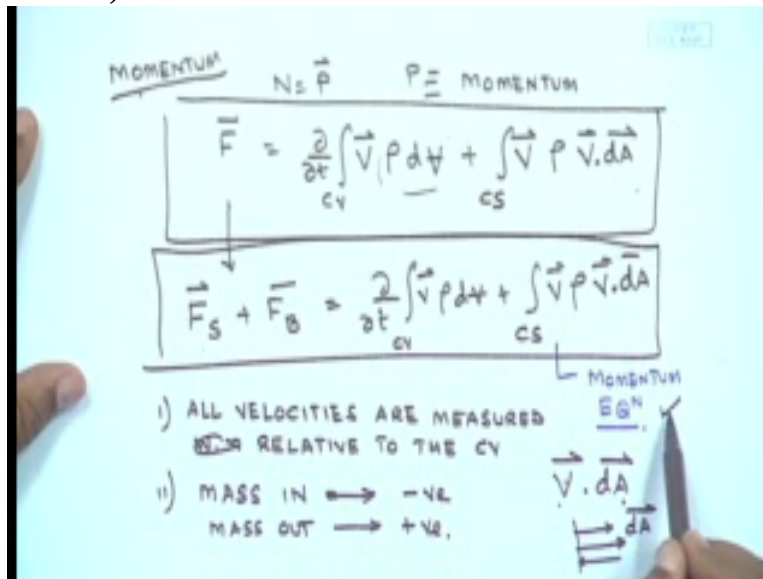 MOMENTUM
N = P⃗ P ≡ MOMENTUM
F̅ = ∂/∂t ∫ V⃗ ρ dV̶ + ∫ V⃗ ρ V⃗.dA⃗
CV CS
F⃗S + F̅B = ∂/∂t ∫ V⃗ ρ dV̶ + ∫ V⃗ ρ V⃗.dA̅
CV CS
MOMENTUM
EQᴺ.
I) ALL VELOCITIES ARE MEASURED
RELATIVE TO THE CV
II) MASS IN → -ve
MASS OUT → +ve.
V⃗ . dA⃗
dA⃗